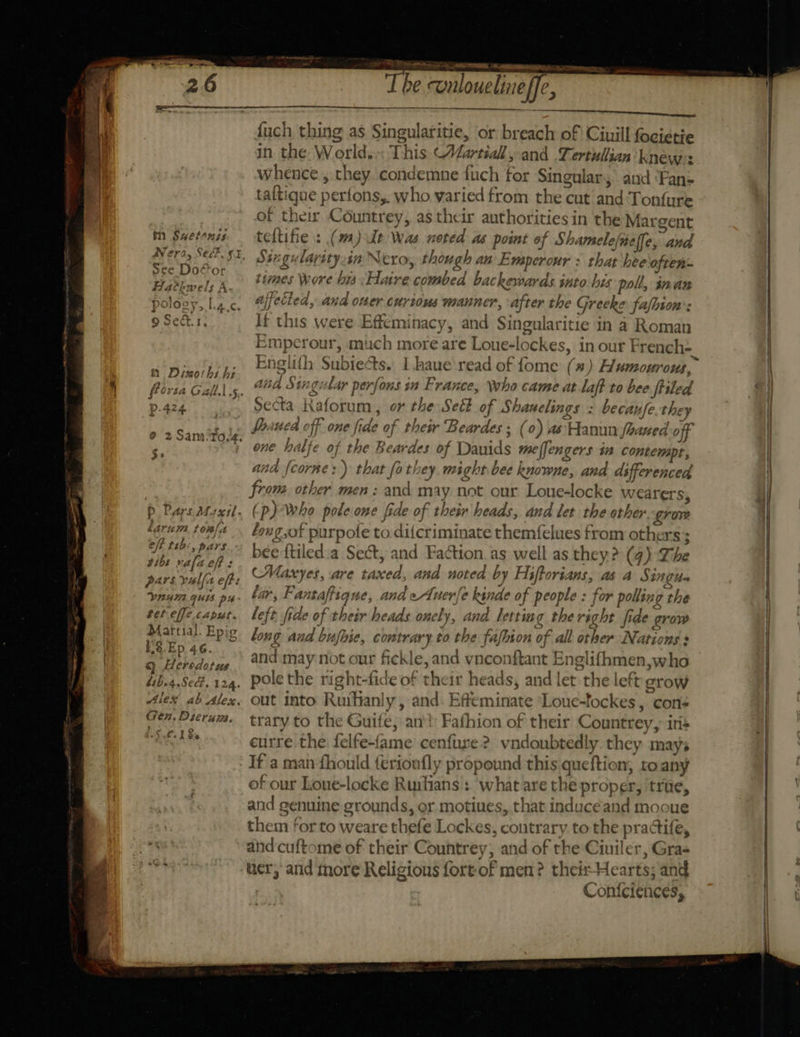 26 The vnlouelinesse,
such thing as Singularitie, or breach of Ciuill societie
in the World. This Martiall, and Tertullian knew:
whence, they condemne such for Singular, and Fan-
tastique persons, who varied from the cut and Tonsure
of their Countrey, as their authorities in the Margent
testifie: (m) It Was noted as point of Shamelesnesse, and
Singularity in Nero, though an Emperour: that hee often-
times Wore his Haire combed backewards into his poll, in an
affected, and ouer curious manner, after the Greeke fashion:
If this were Effeminacy, and Singularitie in a Roman
Emperour, much more are Loue-lockes, in our French-
English Subiects. I haue read of some (n) Humourous,
and Singular persons in France, Who came at last to bee stiled
Secta Rasorum, or the Sect of Shauelings: because they
shaued off one side of their Beardes; (o) as Hanun shaued off
one halfe of the Beardes of Dauids messengers in contempt,
and scorne:) that so they might bee knowne, and differenced
from other men: and may not our Loue-locke wearers,
(p) Who pole one side of their heads, and let the other grow
long, of purpose to discriminate themselues from others;
bee stiled a Sect, and Faction as well as they? (q) The
Maxyes, are taxed, and noted by Historians, as a Singu-
lar, Fantastique, and Auerse kinde of people: for polling the
left side of their heads onely, and letting the right side grow
long and bushie, contrary to the fashion of all other Nations:
and may not our fickle, and vnconstant Englishmen, who
pole the right-side of their heads, and let the left grow
out into Ruffianly, and Effeminate Loue-lockes, con-
trary to the Guise, and Fashion of their Countrey, in-
curre the selfe-same censure? vndoubtedly they may.
If a man should seriously propound this question, to any
of our Loue-locke Ruffians: what are the proper, true,
and genuine grounds, or motiues, that induce and mooue
them for to weare these Lockes, contrary to the practise,
and custome of their Countrey, and of the Ciuiler, Gra-
uer, and more Religious sort of men? their Hearts, and
Consciences,
m Suetonii
Nero, Sect. 51.
See Doctor
Hackwels A-
pology, l.4.c.
9 Sect.1.
n Dinothi hi
storia Gall.l.5.
p.424
o 2 Sam. 10.4.
5.
p Pars Maxil-
larum tonsa
est tibi, pars
tibi rasa est:
pars vulsa est:
vnum quis pu-
tet esse caput.
Martial. Epig
l.8.Ep.46.
q Herodotus
lib.4.Sect. 124.
Alex ab Alex.
Gen. Dierum.
l.5.c.18.